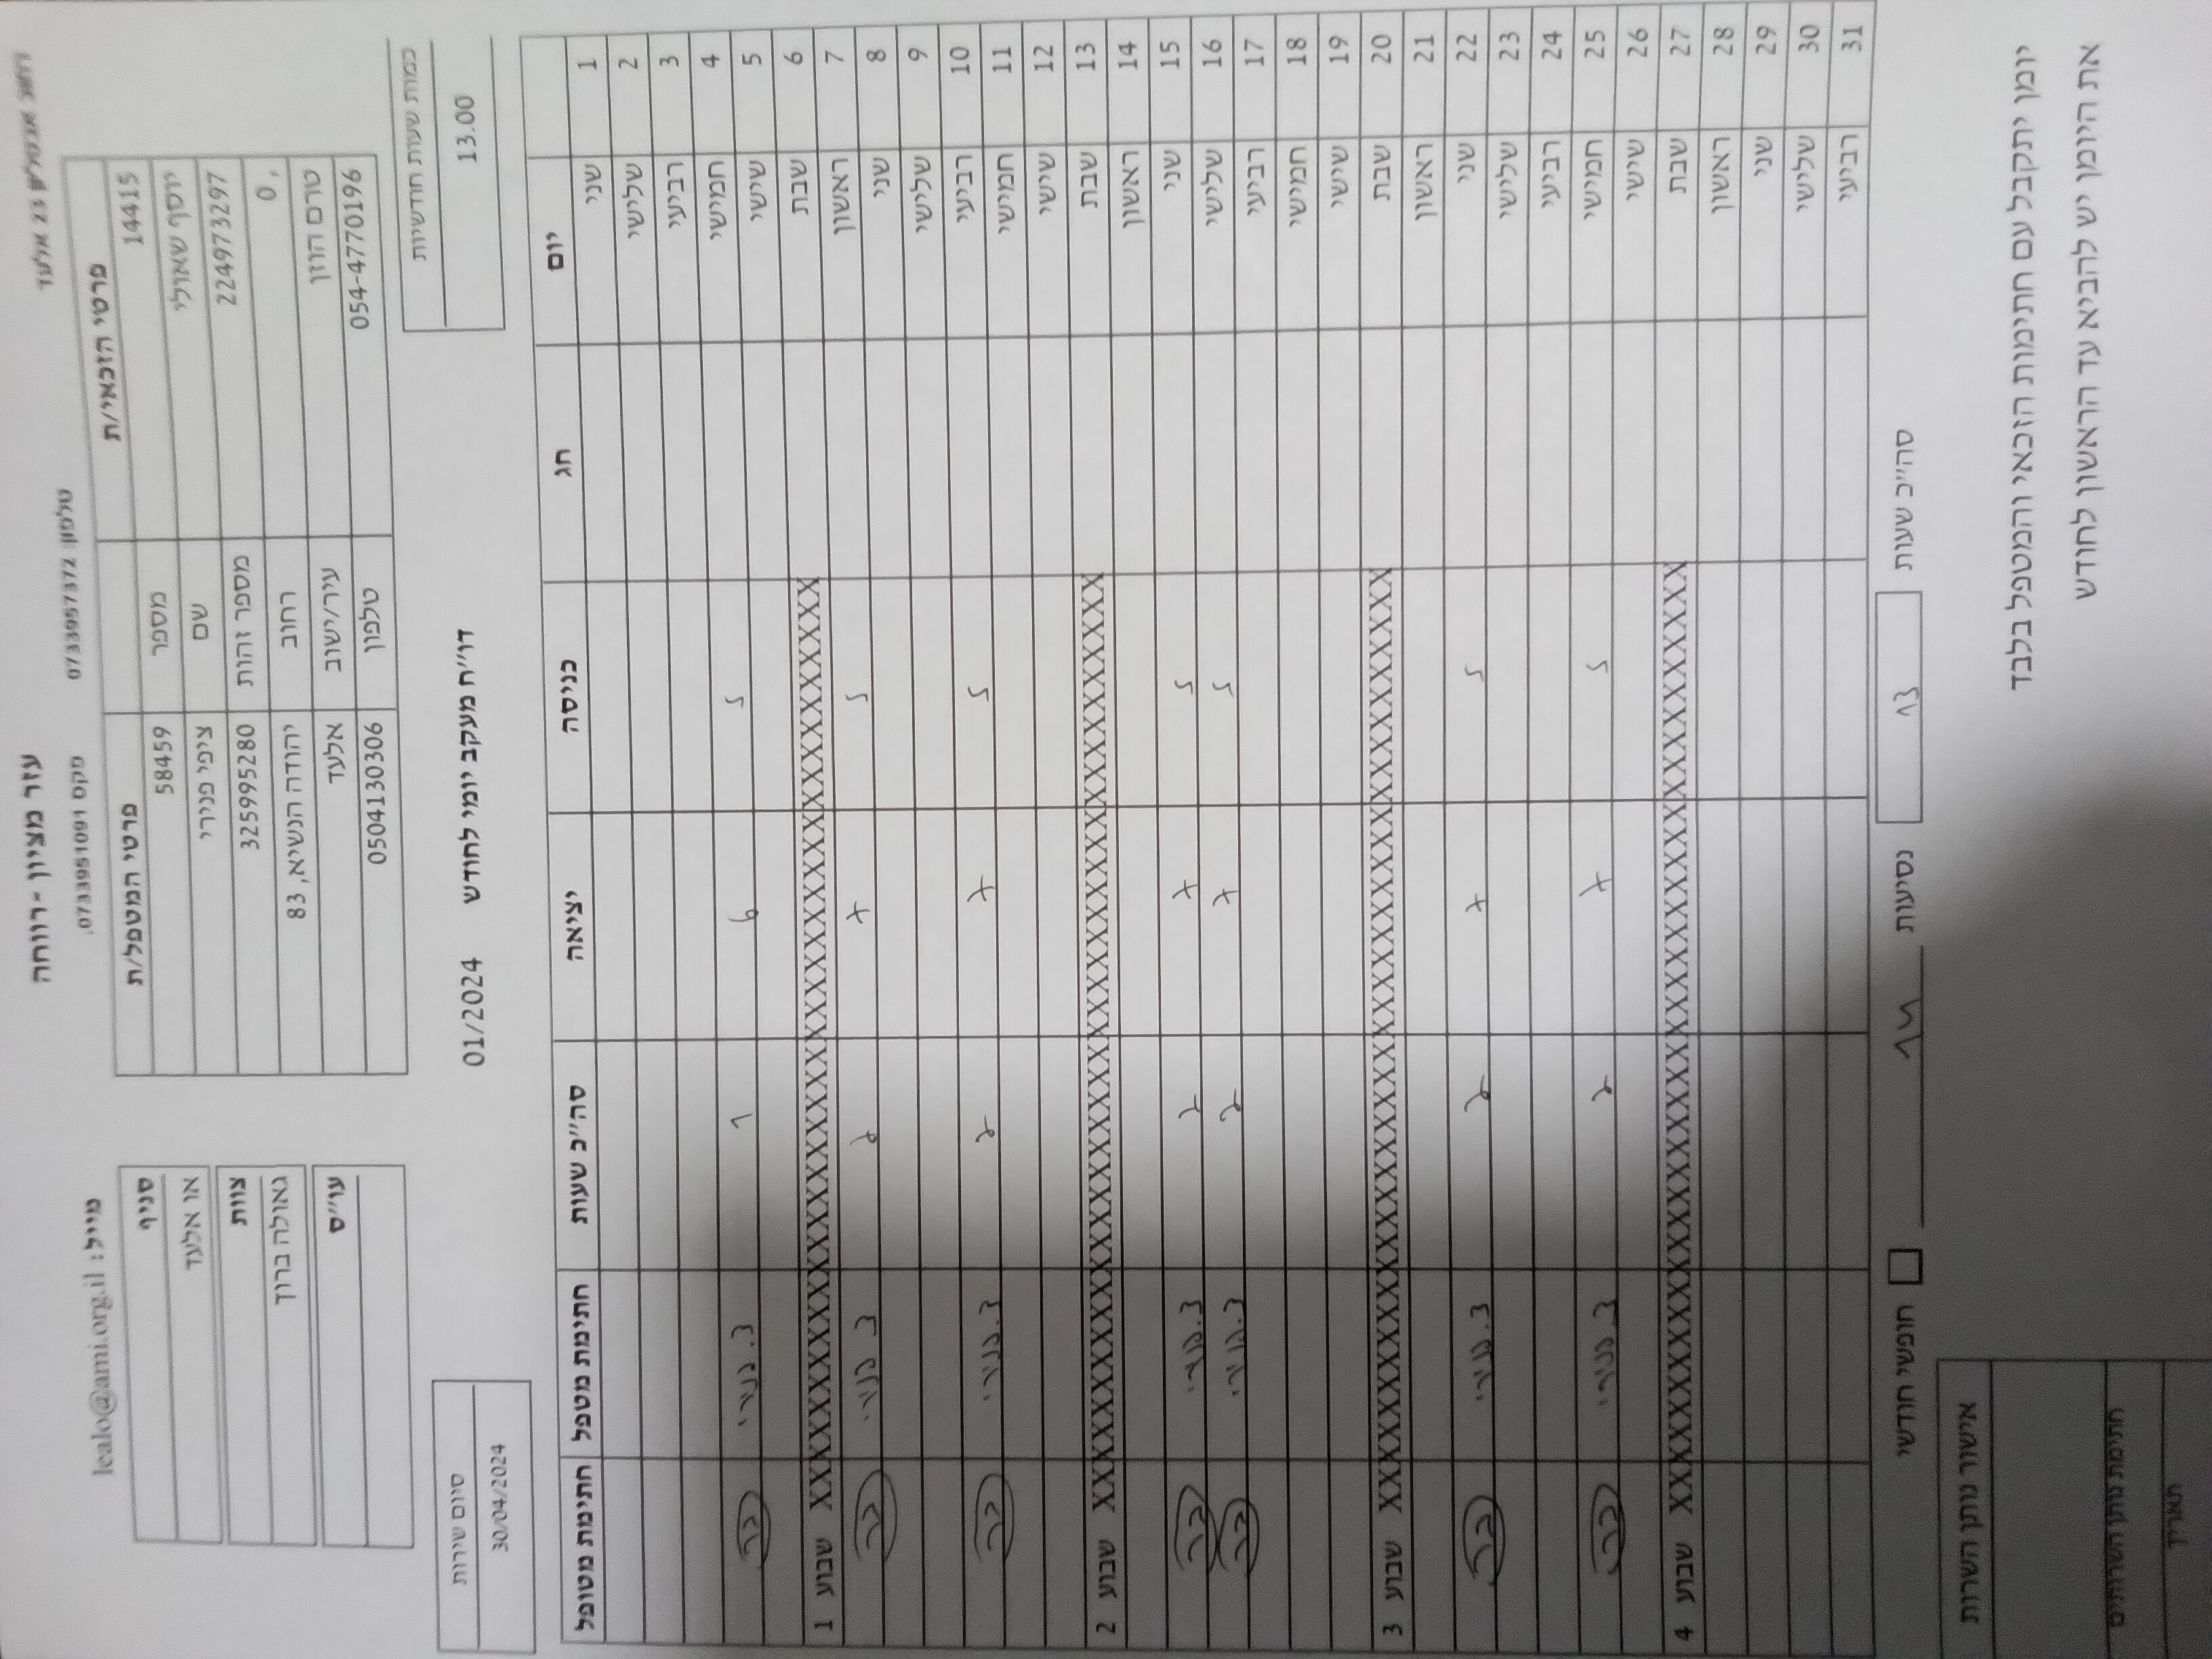 עזר מציון -רווחה
23 אלעד
טלפון: 0733957372 פקס 0733951091.
מייל: lealo@ami.org.il
פרטי הזכאי/ת פרטי המטפל/ת
14415 מספר 58459
יוסף שאולי שם ציפי פנירי
224973297 מספר זהות 325995280
, 0 רחוב יהודה הנשיא, 83
טרם הוזן עיר/ישוב אלעד
054-4770196 טלפון 0504130306
סניף
או אלעד
צוות
גאולה ברוך
עו"ס
כמות שעות חודשיות
13.00
דו"ח מעקב יומי לחודש 01/2024
סיום שירות
30/04/2024
יום חג כניסה יציאה סה"כ שעות חתימת מטפל חתימת מטופל
1 שני
2 שלישי
3 רביעי
4 חמישי 5 6 1 צ. פנירי
5 שישי
6 שבת XXXXXXXXXXXXXXXXXXXXXXXXXXXXXXXXXXXXXXXX שבוע 1
7 ראשון 5 7 2 צ פנירי
8 שני
9 שלישי
10 רביעי 5 7 2 צ. פנירי
11 חמישי
12 שישי
13 שבת XXXXXXXXXXXXXXXXXXXXXXXXXXXXXXXXXXXXXXXX שבוע 2
14 ראשון
15 שני 5 7 2 צ. פנירי
16 שלישי 5 7 2 צ. פנירי
17 רביעי
18 חמישי
19 שישי
20 שבת XXXXXXXXXXXXXXXXXXXXXXXXXXXXXXXXXXXXXXXX שבוע 3
21 ראשון
22 שני 5 7 2 צ. פנירי
23 שלישי
24 רביעי
25 חמישי 5 7 2 צ. פנירי
26 שישי
27 שבת XXXXXXXXXXXXXXXXXXXXXXXXXXXXXXXXXXXXXXXX שבוע 4
28 ראשון
29 שני
30 שלישי
31 רביעי
סה"כ שעות 13 נסיעות 14 חופשי חודשי
יומן יתקבל עם חתימות הזכאי והמטפל בלבד
את היומן יש להביא עד הראשון לחודש
אישור נותן השרות
חתימת נותן השרותים
תאריך